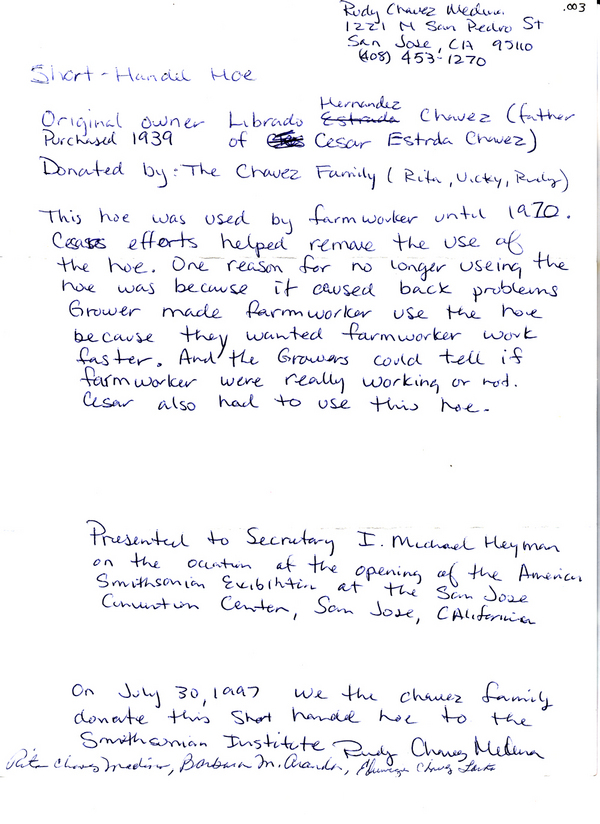 .003
Rudy Chavez Medina
1221 N San Pedro St
San Jose, CA 95110
(408) 453-1270
Short-Handil Hoe
Hernandez
Original owner Librado Estrada Chavez (father
Purchased 1939 of Cesar Estrda Chavez)
Donated by: The Chavez Family (Rita, Vicky, Rudy)
This hoe was used by farmworker until 1970.
Cesars efforts helped remove the use of
the hoe. One reason for no longer useing the
hoe was because it caused back problems
Grower made farmworker use the hoe
because they wanted farmworker work
faster. And the Growers could tell if
farmworker were really working or not.
Cesar also had to use this hoe.
Presented to Secretary I. Michael Heyman
on the ocution of the opening of the American
Smithsonian Exibihtion at the San Jose
Convention Center, San Jose, CAlifornia
On July 30, 1997 we the chavez family
donate this short handel hoe to the
Smithsonian Institute Rudy Chavez Medina
Rita Chavez Medina, Barbara M. Aranda, Chavez